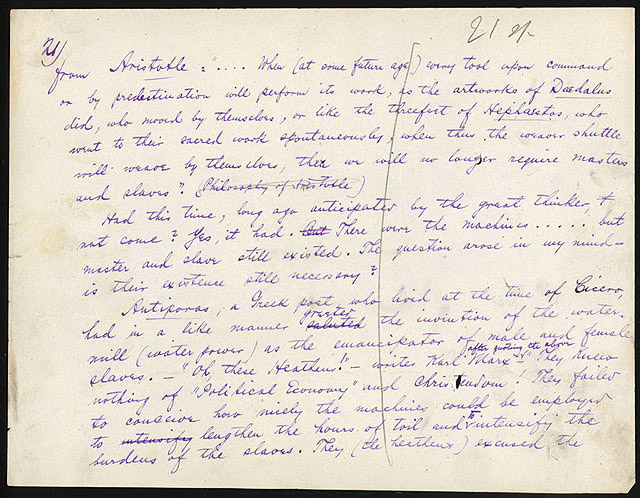 21 A.
21)
from Aristotle: ".... When (at some future age) every tool upon command
or by predestination will perform its work, as the artworks of Daedalus
did, who moved by themselves, or like the threefeet of Hephaestos, who
went to their sacred work spontaneously, when thus the weaver shuttle
will weave by themselves, then we will no longer require masters
and slaves". (Philosophy of Aristotle)
Had this time, long ago anticipated by the great thinker,
not come? Yes, it had. But There were the machines ...... but
master and slave still existed. The question arose in my mind —
is their existence still necessary?
Antiporas, a Greek poet, who lived at the time of Cicero,
greeted
had in a like manner saluted the invention of the water-
mill (water power) as the emancipator of male and female
after quoting the above
slaves. — "Oh, these Heathens!" — writes Karl Marx "They knew
nothing of "Political Economy" and Christendom! They failed
to conceive how nicely the machines could be employed
to intensify lengthen the hours of toil and to intensify the
burdens of the slaves. They (the heathens) excused the